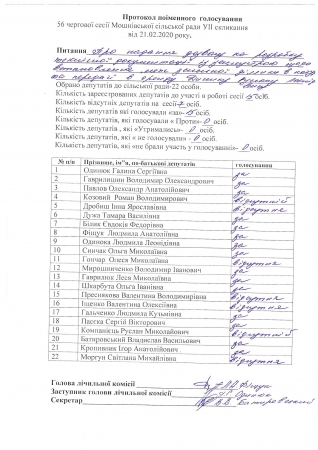 Протокол поіменного голосування
56 чергової сесії Мошнівської сільської ради VII скликання
від 21.02.2020 року.
Питання Про надання дозволу на розробку
технічної документації із землеустрою щодо
встановлення меж земельної ділянки в натурі
та передачі в оренду
Обрано депутатів до сільської ради-22 особи.
Кількість зареєстрованих депутатів до участі в роботі сесії осіб.
Кількість відсутніх депутатів на сесії осіб.
Кількість депутатів які голосували «за» осіб.
Кількість депутатів, які голосували « Проти»-0 осіб.
Кількість депутатів , які «Утримались»- 0 осіб.
Кількість депутатів, які « не голосували» - 0 осіб.
Кількість депутатів, які «не брали участь у голосуванні»- 0 осіб.
№ п/п Прізвище, ім"я, по-батькові депутатів голосування
1 Одинюк Галина Сергіївна за
2 Гаврилишин Володимир Олександрович за
3 Павлов Олександр Анатолійович за
4 Козовий Роман Володимирович відсутній
5 Дробиш Інна Ярославівна за
6 Дужа Тамара Василівна за
7 Білик Євдокія Федорівна за
8 Фіщук Людмила Анатоліївна за
9 Одинока Людмила Леонідівна за
10 Синчак Ольга Миколаївна за
11 Гончар Олеся Миколаївна відсутня
12 Мирошниченко Володимир Іванович за
13 Гаврилюк Леся Миколаївна за
14 Шкарбута Ольга Іванівна за
15 Преснякова Валентина Володимирівна відсутня
16 Іщенко Валентина Олексіївна відсутня
17 Гальченко Людмила Кузьмівна за
18 Пасєка Сергій Вікторович за
19 Компанієць Руслан Миколайович відсутній
20 Батировський Владислав Васильович за
21 Кропивник Ігор Анатолійович за
22 Моргун Світлана Михайлівна відсутня
Голова лічильної комісії Л.А. Фіщук
Заступник голови лічильної комісії
Секретар В.В. Батировський